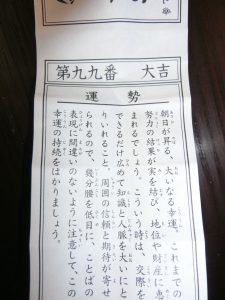 第九九番　大吉
運勢
朝日が昇る、大いなる幸運。これまでの
努力の結果が実を結び、地位や財産に恵
まれるでしょう。こういう時は、交際を
できるだけ広めて知識と人脈を大いにと
りいれること。周囲の信頼と期待が寄せ
られるので、幾分腰を低目に、ことばの
表現に間違いのないように注意して、この
幸運の持続をはかりましょう。